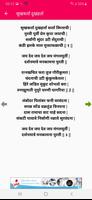 सुखकर्ता दुखहर्ता
सुखकर्ता दुखहर्ता वार्ता विघ्नाची |
नुरवी पुरवी प्रेम कृपा जयाची |
सर्वांगी सुंदर उटी शेंदुराची |
कंठी झळके माळ मुक्ताफळांची |
जय देव जय देव जय मंगलमूर्ती |
दर्शनमात्रे मनकामना पुरती |
रत्नखचित फरा तुज गौरीकुमरा |
चंदनाची उटी कुंकुमकेशरा |
हिरेजडित मुकुट शोभतो बरा |
रुणझुणती नूपुरे चरणी घागरिया |
जय देव जय देव जय मंगलमूर्ती |
दर्शनमात्रे मनकामना पुरती |
लंबोदर पितांबर फणीवर बंधना |
सरळ सोंड वक्रतुंड त्रिनयना |
दास रामाचा वाट पाहे सदना |
संकटी पावावे निर्वाणी रक्षावे सुरवरवंदना |
जय देव जय देव जय मंगलमूर्ती |
दर्शनमात्रे मनकामना पुरती |